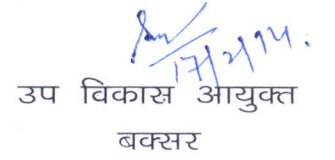 17/2/14.
उप विकास आयुक्त
बक्सर